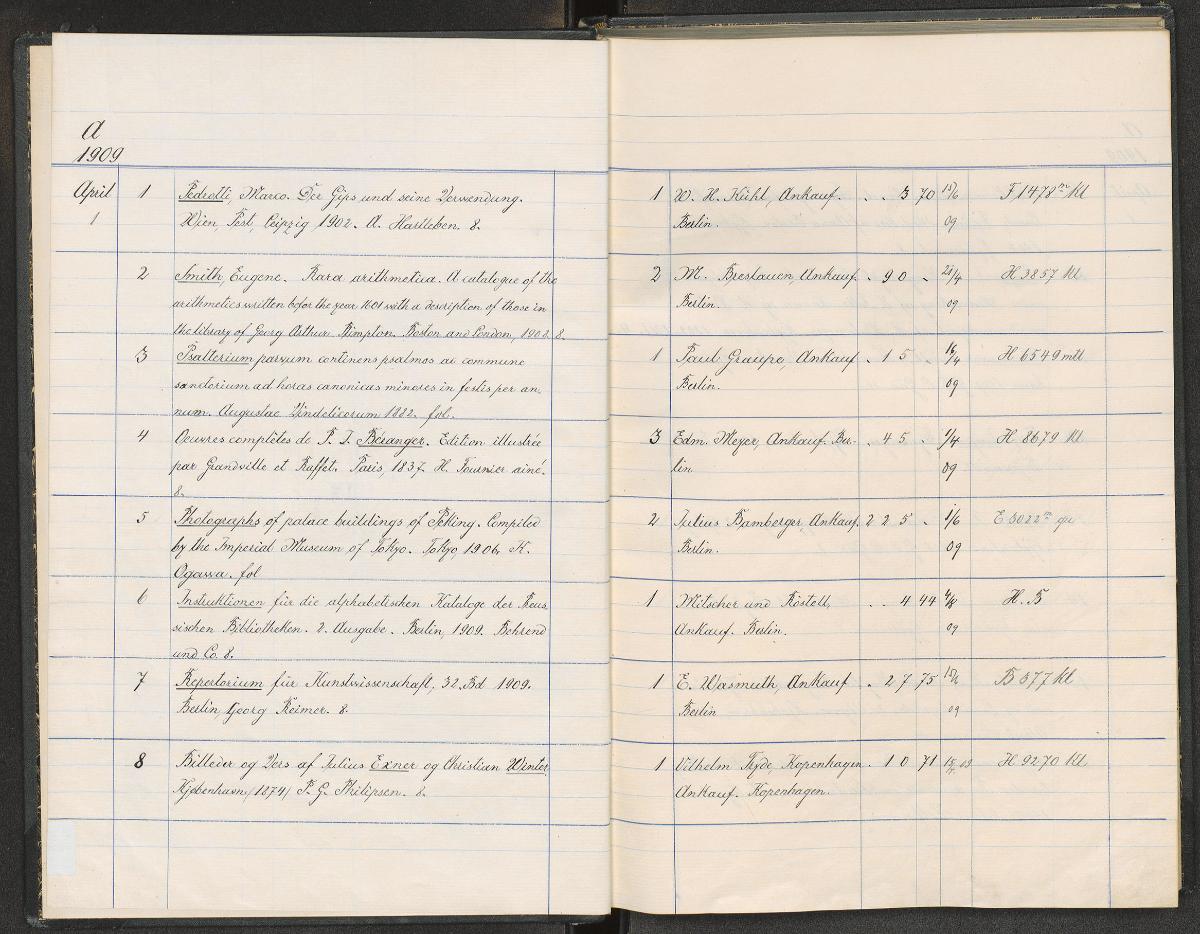 A
1909
April 1 Pedrotti, Marco. Der Gips und seine Verwendung. 1 W. H. Kühl, Ankauf. . . 3 70 15/6 F 1478 m Kl
1 Wien, Pest, Leipzig 1902. A. Hartleben. 8. Berlin. 09
2 Smith, Eugene. Rara arithmetica. A catalogue of the 2 M. Breslauer, Ankauf. . 90 . 28/4 H 3857 Kl
arithmetics written befor the year 1601 with a description of those in Berlin. 09
the library of Georg Arthur Plimpton. Boston and London, 1908. 8.
3 Psalterium parvum continens psalmos ac commune 1 Paul Graupe, Ankauf . 15 . 16/4 H 6549 mtl
sanctorium ad horas canonicas minores in festis per an- Berlin. 09
num. Augustae Vindelicorum 1882. fol.
4 Oeuvres complètes de P. J. Béranger. Edition illustrée 3 Edm. Meyer, Ankauf. Ber- . 45 . 1/4 H 8679 Kl
par Grandville et Raffet. Paris, 1837. H. Fournier ainé. lin. 09
8.
5 Photographs of palace buildings of Peking. Compiled 2 Julius Bamberger, Ankauf. 225 . 1/6 E 5022 m qu
by the Imperial Museum of Tokyo. Tokyo, 1906. K. Berlin. 09
Ogawa. fol
6 Instruktionen für die alphabetischen Kataloge der Preus- 1 Mitscher und Röstell, . . 4 44 4/8 H. B
sischen Bibliotheken. 2. Ausgabe. Berlin, 1909. Behrend Ankauf. Berlin. 09
und Co. 8.
7 Repertorium für Kunstwissenschaft, 32. Bd 1909. 1 E. Wasmuth, Ankauf . 27 75 B 577 Kl
Berlin, Georg Reimer. 8. Berlin 09
8 Billeder og Vers af Julius Exner og Christian Winter. 1 Vilhelm Tryde, Kopenhagen. . 10 71 09 H 9270 Kl
Kjøbenhavn /1874/ P. G. Philipsen. 8. Ankauf. Kopenhagen.